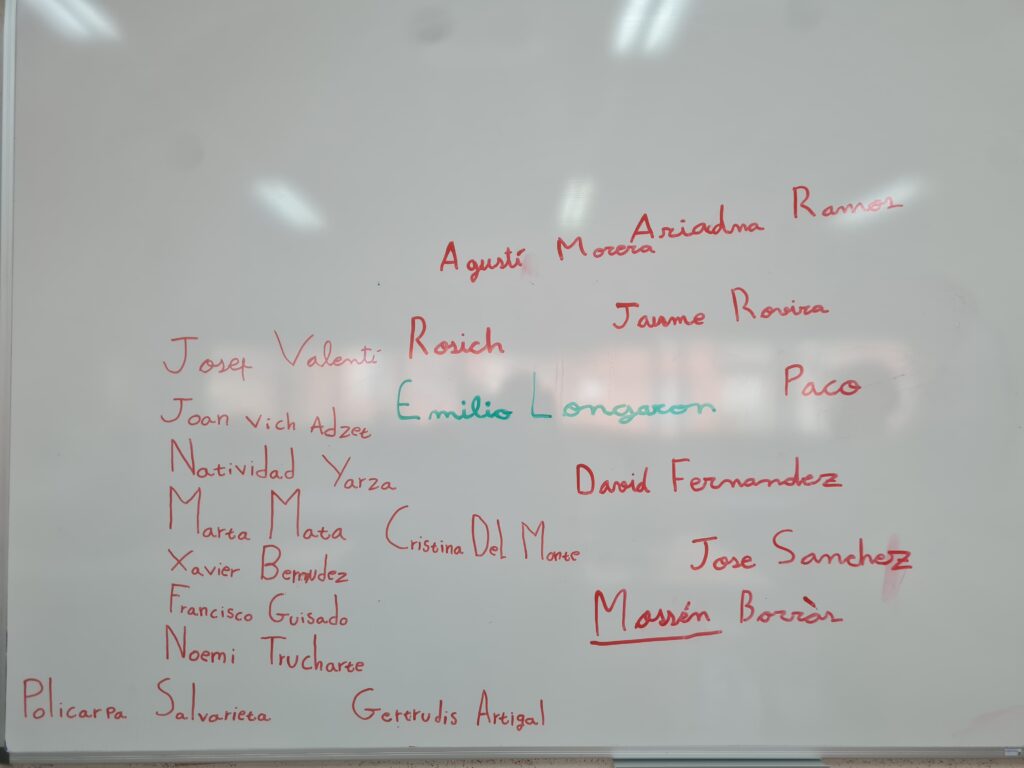 Ariadna Ramos
Agustí Morera
Jaume Rovira
Josef Valentí Rosich
Paco
Emilio Longaron
Joan Vich Adzet
Natividad Yarza
David Fernandez
Marta Mata
Cristina Del Monte
Jose Sanchez
Xavier Bemudez
Francisco Guisado
Mossén Borràs
Noemi Trucharte
Policarpa Salvarieta
Gertrudis Artigal